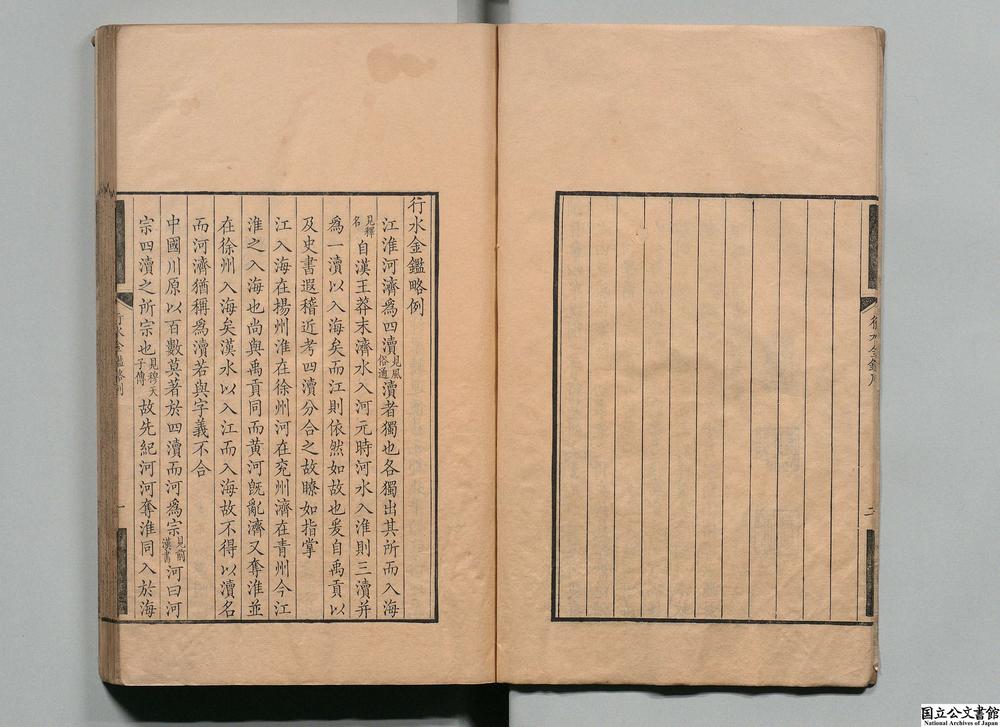 行水金鑑序
二
行水金鑑略例
江淮河濟爲四瀆見風俗通瀆者獨也各獨出其所而入海
見釋名自漢王莽末濟水入河元時河水入淮則三瀆并
爲一瀆以入海矣而江則依然如故也爰自禹貢以
及史書遐稽近考四瀆分合之故瞭如指掌
江入海在揚州淮在徐州河在兗州濟在青州今江
淮之入海也尚與禹貢同而黃河旣亂濟又奪淮並
在徐州入海矣漢水以入江而入海故不得以瀆名
而河濟猶稱爲瀆若與字義不合
中國川原以百數莫著於四瀆而河爲宗見前漢書河曰河
宗四瀆之所宗也見穆天子傳故先紀河河奪淮同入於海
行水金鑑略例
一
国立公文書館
National Archives of Japan